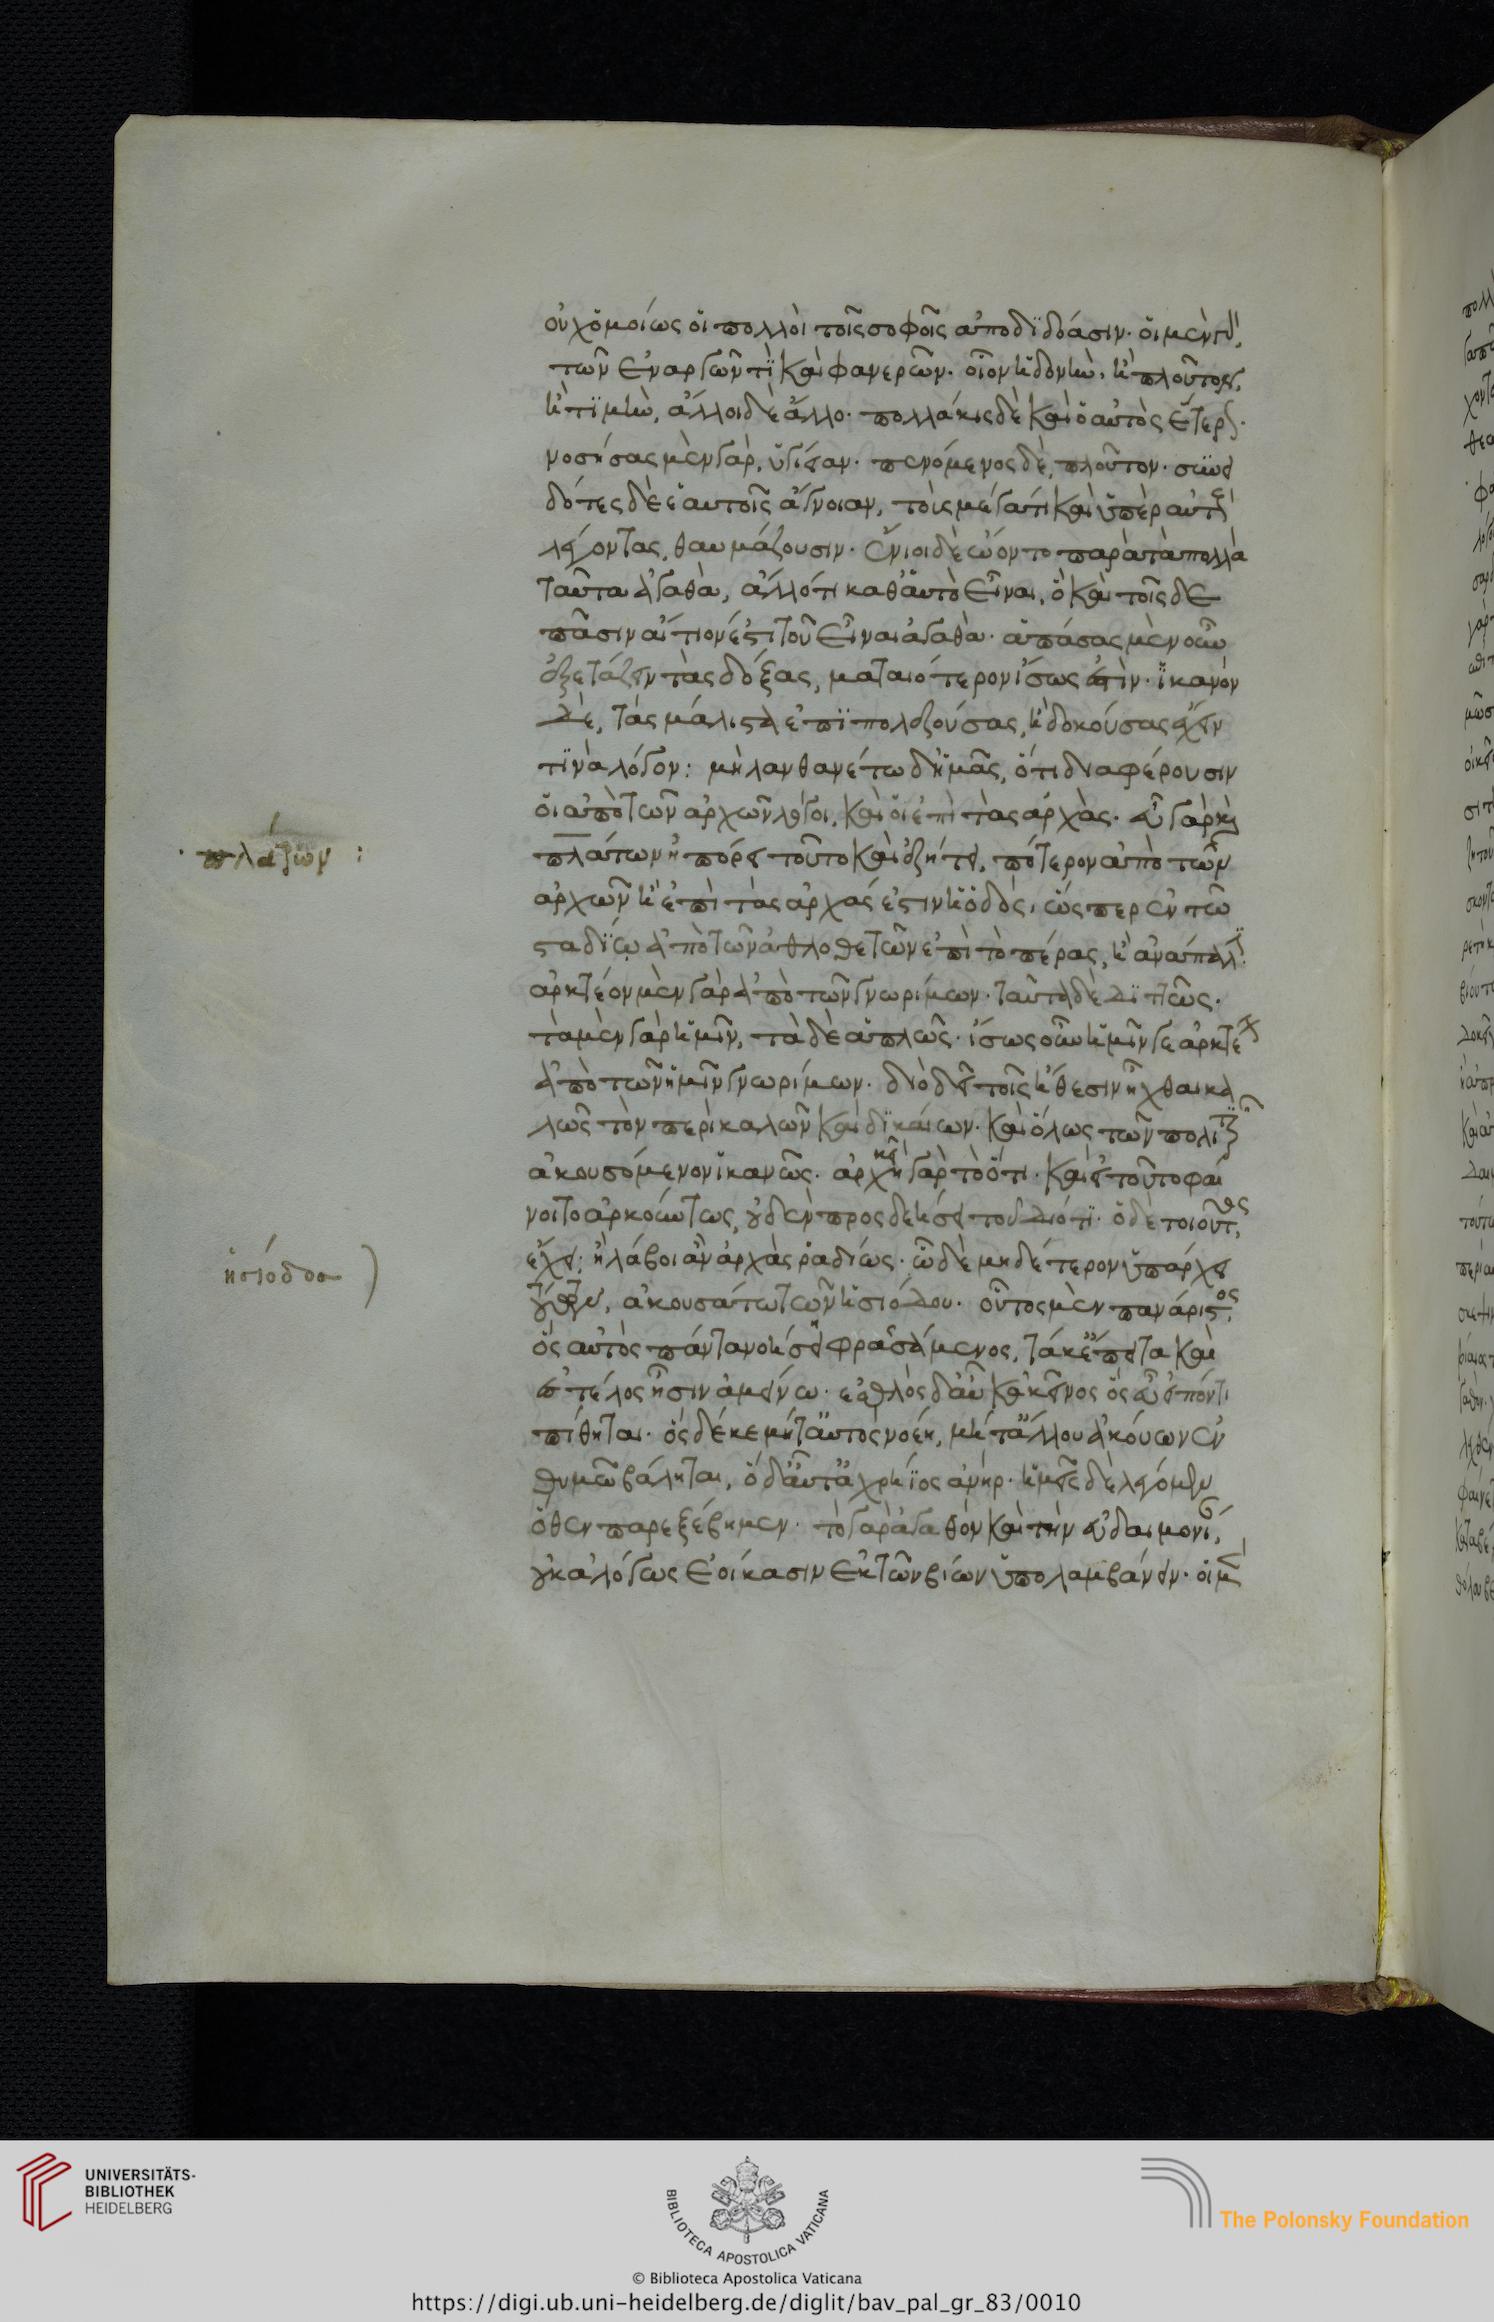 οὐχ ὁμοίως οἱ πολλοὶ τοῖς σοφοῖς ἀποδιδόασιν. οἱ μὲν γὰρ
τῶν ἐναργῶν τὶ καὶ φανερῶν. οἷον ἡδονὴν, ἢ πλοῦτον,
ἢ τιμὴν, ἄλλοι δὲ ἄλλο. πολλάκις δὲ καὶ ὁ αὐτὸς ἕτερον.
νοσήσας μὲν γὰρ, ὑγίειαν. πενόμενος δὲ, πλοῦτον. συνει
δότες δὲ ἑαυτοῖς ἄγνοιαν, τοὺς μέγα τι καὶ ὑπὲρ αὐτοὺς
λέγοντας, θαυμάζουσιν. ἔνιοι δὲ ᾤοντο παρὰ τὰ πολλὰ
ταῦτα ἀγαθὰ, ἄλλό τι καθ' αὑτὸ εἶναι, ὃ καὶ τοῖσδε
πᾶσιν αἴτιόν ἐστι τοῦ εἶναι ἀγαθὰ. ἁπάσας μὲν οὖν
ἐξετάζειν τὰς δόξας, ματαιότερον ἴσως ἐστὶν. ἱκανὸν
δὲ, τὰς μάλιστα ἐπιπολαζούσας, ἢ δοκούσας ἔχειν
τινὰ λόγον: μὴ λανθανέτω δ' ἡμᾶς, ὅτι διαφέρουσιν
οἱ ἀπὸ τῶν ἀρχῶν λόγοι, καὶ οἱ ἐπὶ τὰς ἀρχὰς. εὖ γὰρ καὶ
πλάτων ἠπόρει τοῦτο καὶ ἐζήτει, πότερον ἀπὸ τῶν
ἀρχῶν ἢ ἐπὶ τὰς ἀρχάς ἐστιν ἡ ὁδός, ὥσπερ ἐν τῶ
σταδίω ἀπὸ τῶν ἀθλοθετῶν ἐπὶ τὸ πέρας, ἢ ἀνάπαλιν.
ἀρκτέον μὲν γὰρ ἀπὸ τῶν γνωρίμων. ταῦτα δὲ διττῶς.
τὰ μὲν γὰρ ἡμῖν, τὰ δὲ ἁπλῶς. ἴσως οὖν ἡμῖν γε ἀρκτέον
ἀπὸ τῶν ἡμῖν γνωρίμων. διὸ δεῖ τοῖς ἤθεσιν ἦχθαι κα
λῶς τὸν περὶ καλῶν καὶ δικαίων. καὶ ὅλως τῶν πολιτικῶν
ἀκουσόμενον ἱκανῶς. ἀρχὴ γὰρ τὸ ὅτι. καὶ εἰ τοῦτο φαί
νοιτο ἀρκούντως, οὐδὲν προσδεήσει τοῦ διότι. ὁ δὲ τοιοῦτος
ἔχει, ἢ λάβοι ἂν ἀρχὰς ῥαδίως. ᾧ δὲ μηδέτερον ὑπάρχει
τούτων, ἀκουσάτω τῶν ἡσιόδου. οὗτος μὲν πανάριστος,
ὃς αὐτὸς πάντα νοήσει φρασάμενος, τά κ' ἔπειτα καὶ
ἐς τέλος ᾖσιν ἀμείνω. ἐσθλὸς δ' αὖ κἀκεῖνος ὃς εὖ εἰπόντι
πίθηται. ὃς δέ κε μήτ' αὐτὸς νοέη, μήτ' ἄλλου ἀκούων ἐν
θυμῶ βάληται, ὁ δ' αὖτ' ἀχρήϊος ἀνήρ. ἡμεῖς δὲ λέγωμεν
ὅθεν παρεξέβημεν. τὸ γὰρ ἀγαθὸν καὶ τὴν εὐδαιμονίαν,
οὐκ ἀλόγως ἐοίκασιν ἐκ τῶν βίων ὑπολαμβάνειν. οἱ μὲν
πλάτων:
ἡσίοδος
UNIVERSITÄTS-
BIBLIOTHEK
HEIDELBERG
BIBLIOTECA APOSTOLICA VATICANA
The Polonsky Foundation
© Biblioteca Apostolica Vaticana
https://digi.ub.uni-heidelberg.de/diglit/bav_pal_gr_83/0010